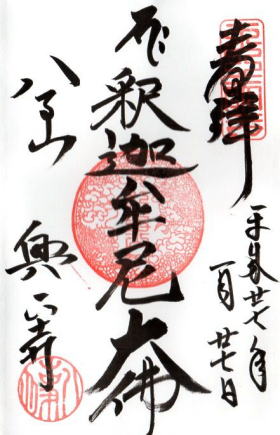 奉拝
平成廿七年
一月廿七日
釈迦牟尼大佛
八事山
興正寺